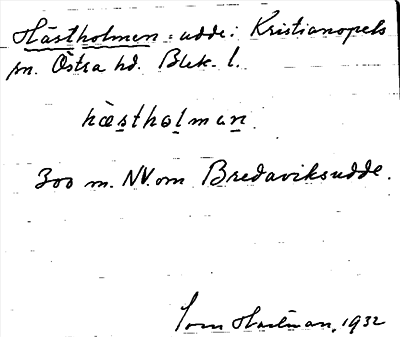 Hästholmen : udde i Kristianopels
sn. Östra hd. Blek. l.
hæstholman
300 m. NV. om Bredaviksudde.
Tom Hartman, 1932